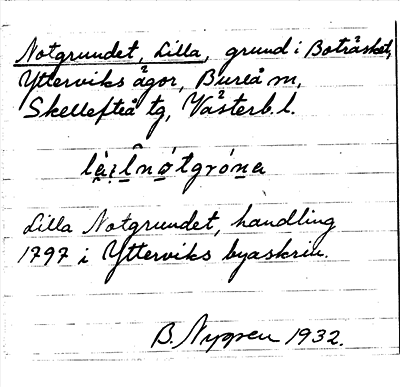 Notgrundet, Lilla, grund i Boträsket,
Ytterviks ägor, Bureå sn,
Skellefteå tg, Västerb. l.
Lilla Notgrundet, handling
1797 i Ytterviks byaskrin.
B. Nygren 1932.